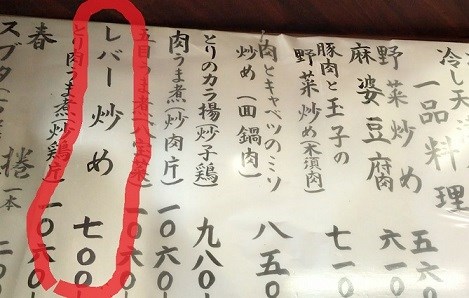 冷し天
一品料理
野菜炒め 五六〇
麻婆豆腐 六一〇
豚肉と玉子の
野菜炒め(木須肉) 七一〇
肉とキャベツのミソ
炒め(回鍋肉) 八五〇
とりのカラ揚(炒子鶏) 九八〇
肉うま煮(炒肉片) 一〇六〇
五目うま煮(八宝菜) 一〇六〇
レバー炒め 七〇〇
とり肉うま煮(炒鶏片) 一〇六〇
春捲 一本 二〇
スブタ